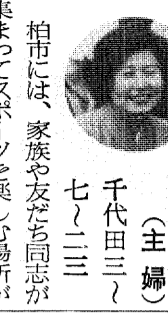 （主婦）
千代田三～
七～二三
柏市には、家族や友だち同志が
集まってスポーツを楽しむ場所が